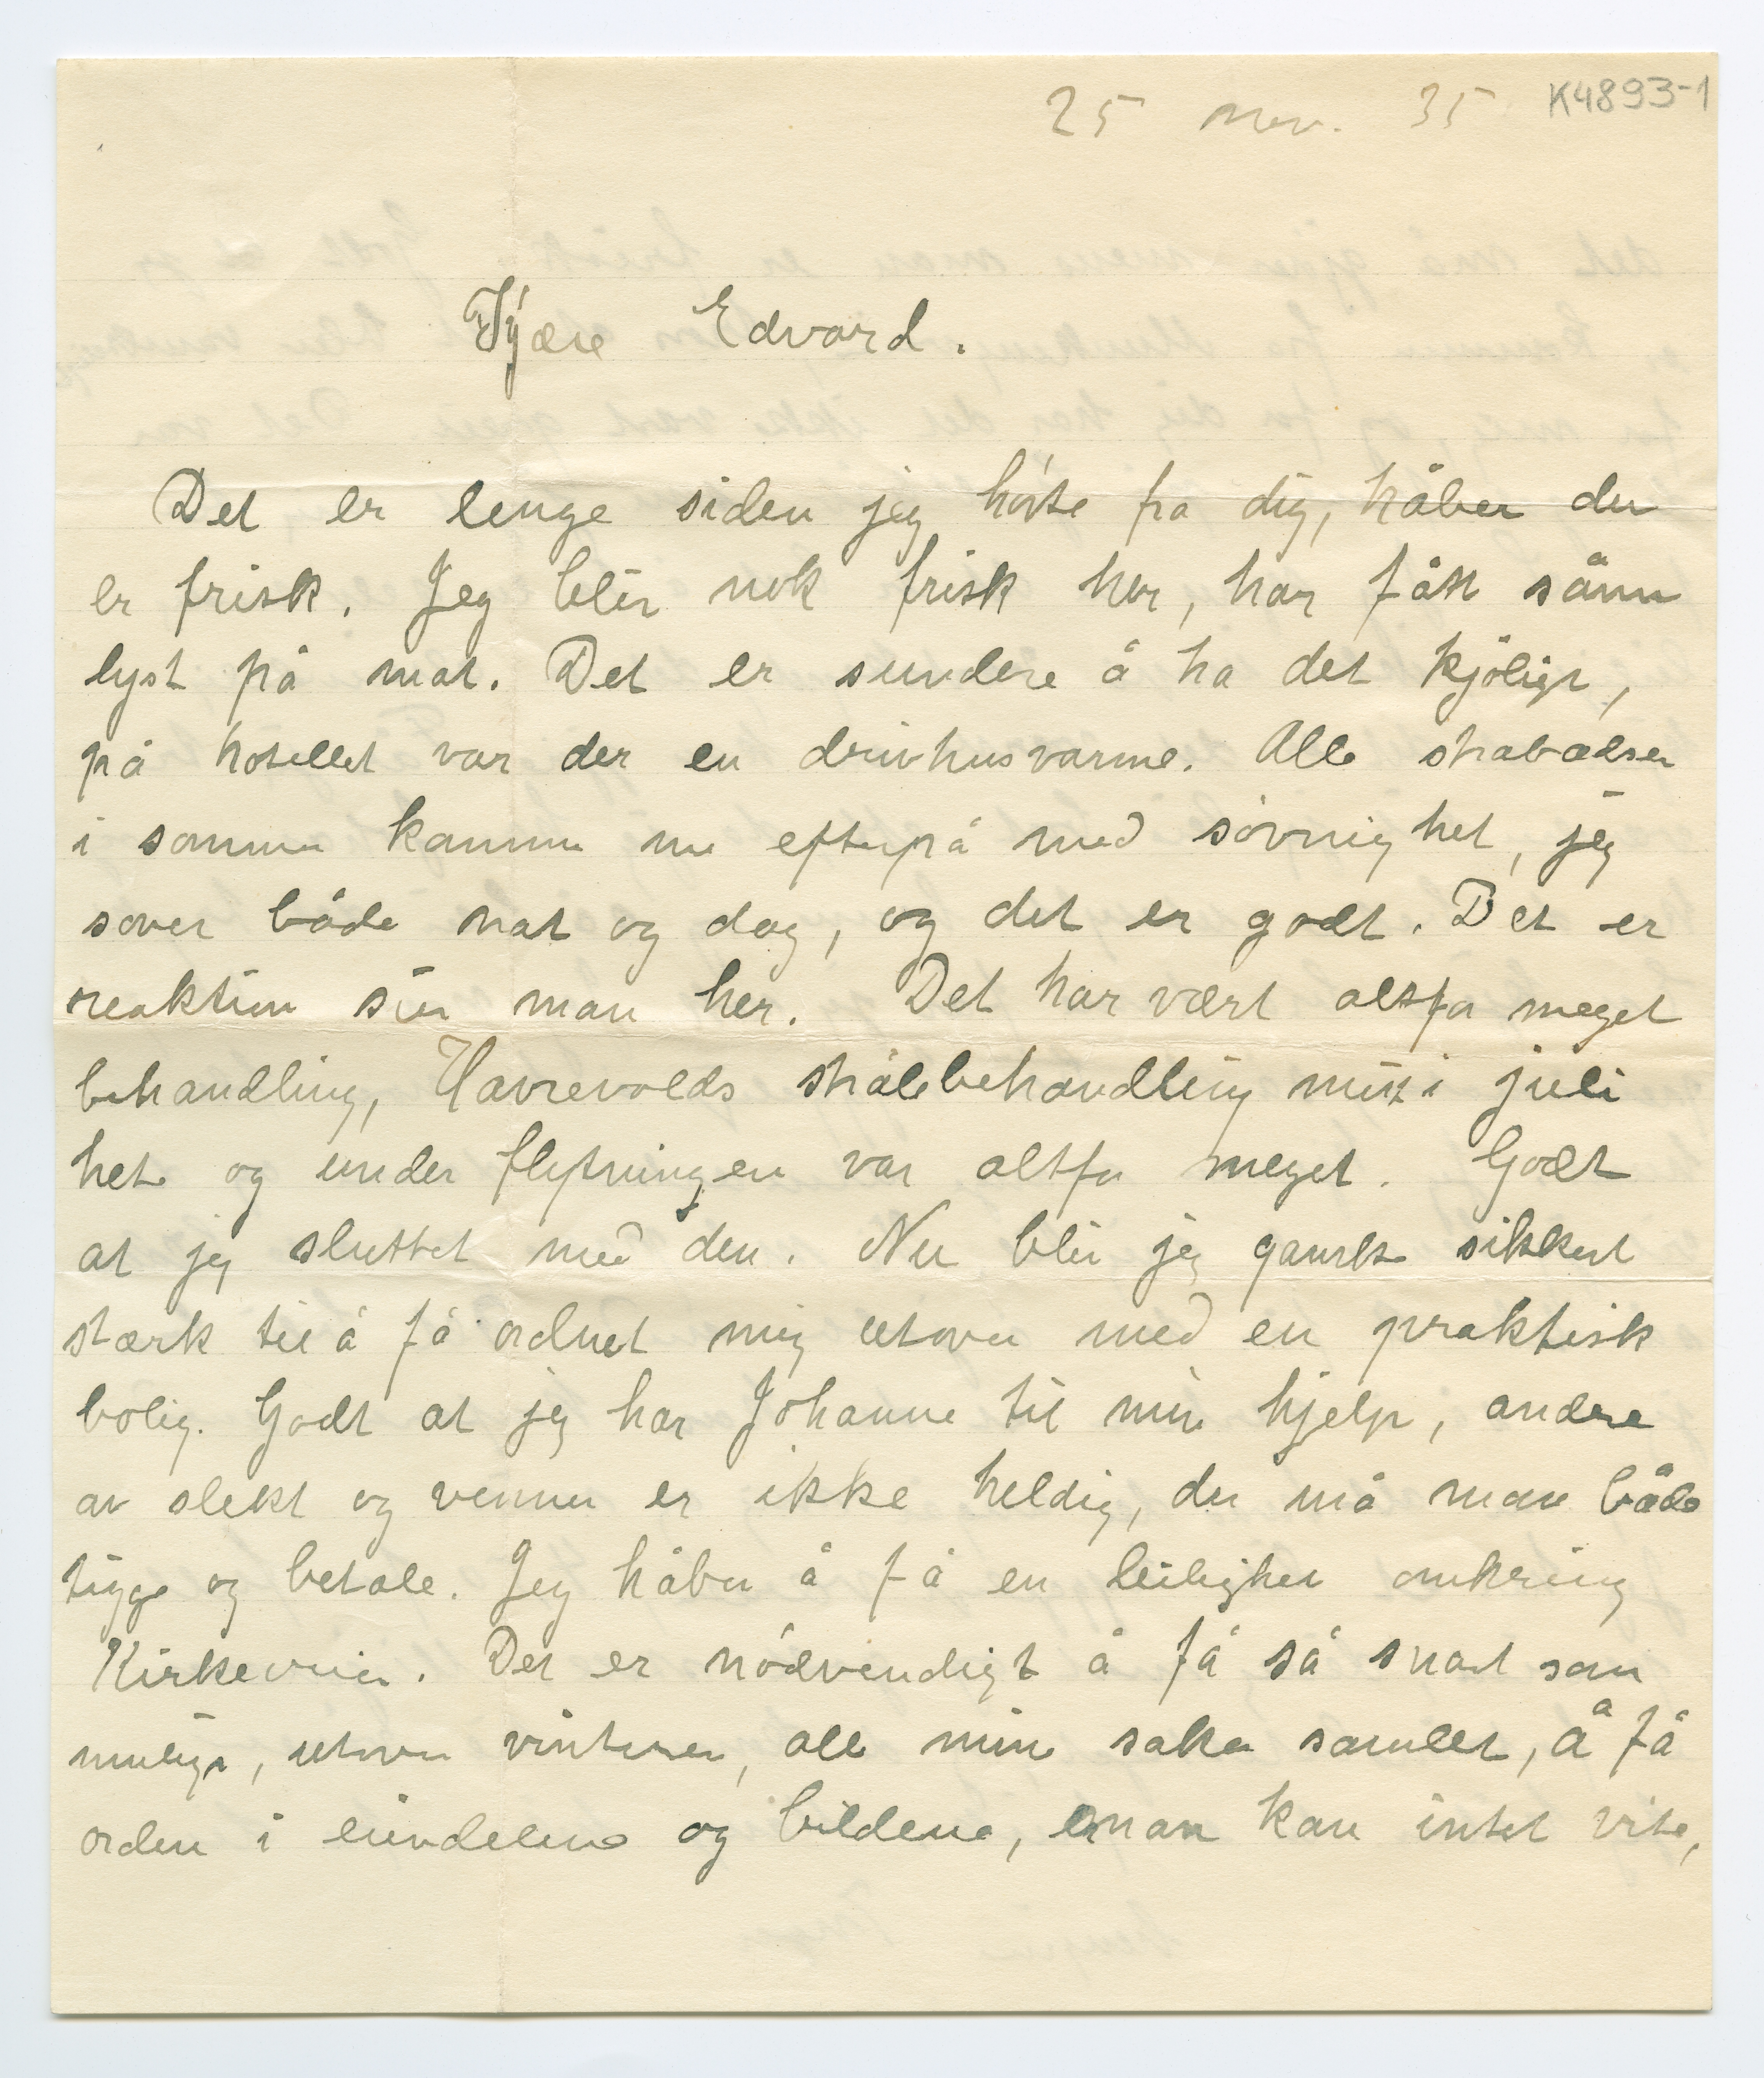 25 nov. 35 K4893-1
Kjære Edvard.
Det er lenge siden jeg hörte fra dig, håber du
er frisk. Jeg blir nok frisk her, har fått sånn
lyst på mat. Det er sundere å ha det kjöligt,
på hotellet var der en drivhusvarme. Alle strabadser
i sommer kommer nu efterpå med sövnighet, jeg
sover både nat og dag, og det er godt. Det er
reaktion sier man her. Det har vært altfor meget
behandling, Havrevolds strålebehandling i juli
hete og under flytningen var altfor meget. Godt
at jeg sluttet med den. Nu blir jeg ganske sikkert
stærk til å få ordnet mig utover med en praktisk
bolig. Godt at jeg har Johanne til min hjelp, andre
av slekt og venner er ikke heldig, der må man både
tigge og betale. Jeg håber å få en leilighet omkring
Kirkeveien. Det er nödvendigt å få så snart som
muligt, utover vinteren, alle mine saker samlet, å få
orden i eiendelene og bildene, man kan intet vite,